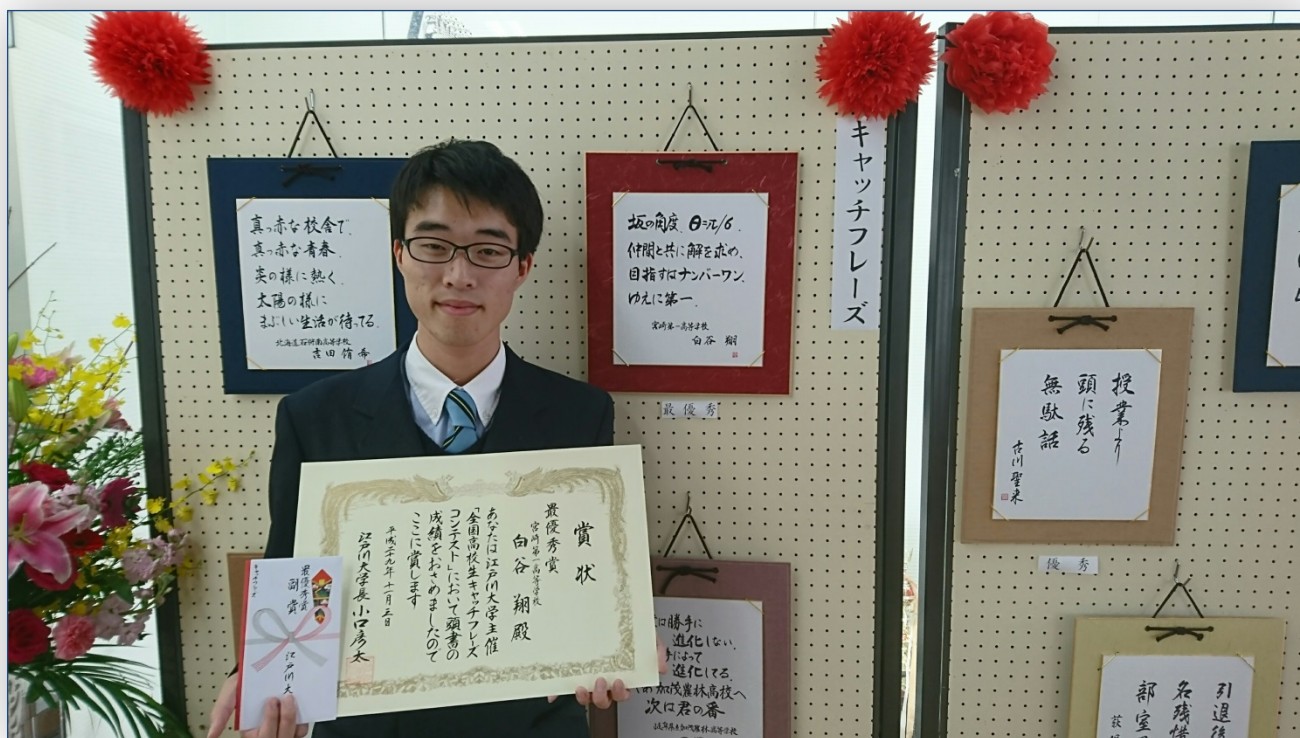 キャッチフレーズ
真っ赤な校舎で、
真っ赤な青春。
炎の様に熱く、
太陽の様に
まぶしい生活が待ってる。
北海道石狩南高等学校
吉田
坂の角度、θ=π/6、
仲間と共に解を求め、
目指すはナンバーワン、
ゆえに第一。
宮崎第一高等学校
白谷 翔
最優秀
授業より
頭に残る
無駄話
古川聖来
優秀
賞状
最優秀賞
宮崎第一高等学校
白谷 翔 殿
あなたは江戸川大学主催
「全国高校生キャッチフレーズ
コンテスト」において頭書の
成績をおさめましたので
ここに賞します
平成二十九年十一月三日
江戸川大学長 小口彦太
キャッチフレーズ
最優秀賞
副賞
江戸川大
勝手に
進化しない。
手によって
進化してる。
加茂農林高校へ
次は君の番
引退後
名残惜
部室